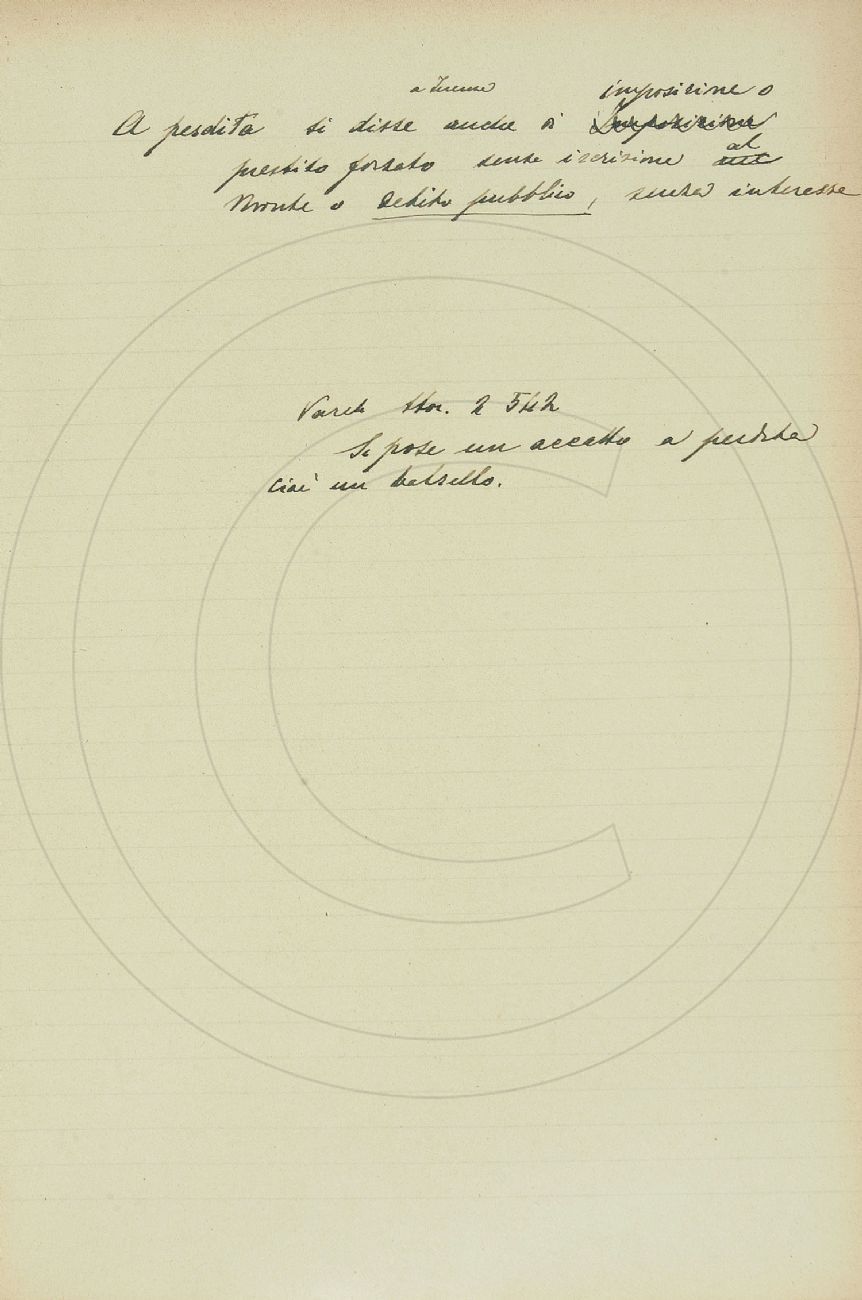 a Firenze imposizione o
A perdita si disse anche di imposizione
prestito forzato senza iscrizione al
Monte o debito pubblico, senza interesse
Varchi Stor. 2 542
Si pose un accatto a perdita
cioè un balzello.